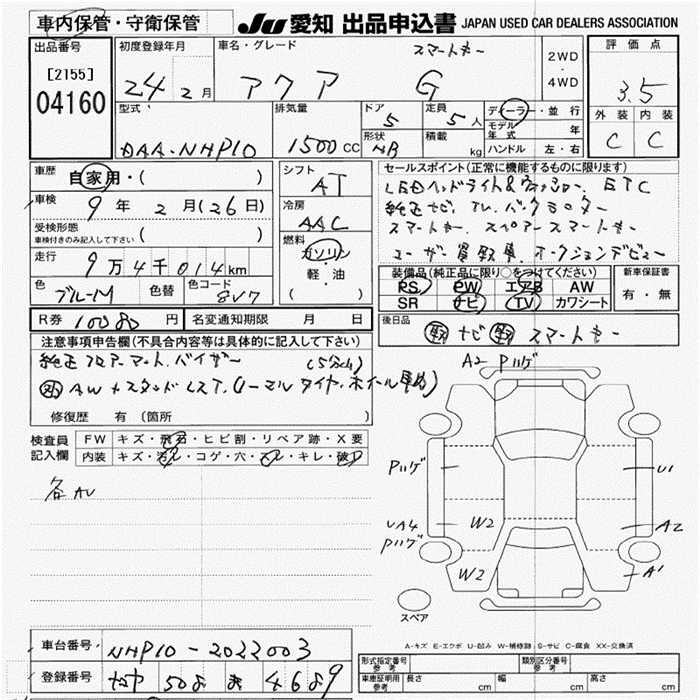 車内保管・守衛保管 JU 愛知 出品申込書 JAPAN USED CAR DEALERS ASSOCIATION
出品番号 初度登録年月 車名・グレード スマートキー 2WD ・ 4WD 評価点
[2155] 04160 24 2月 アクア G 3.5
型式 排気量 ドア 定員 ディーラー・並行 外装 内装
DAA-NHP10 1500cc 5 5人 モデル年式 年 C C
形状 HB 積載 kg ハンドル 左・右
車歴 自家用・( ) シフト AT セールスポイント(正常に機能するものに限ります)
車検 9年 2月(26日) 冷房 AAC LEDヘッドライト& ETC
受検形態 車検付きのみ記入して下さい ( ) 純正ナビ, TV, バックモニター
燃料 ガソリン 軽・油 スマートキー, スペアースマートキー
走行 9万4千014km ユーザー買取車, オークションデビュー
色 ブルーM 色替 色コード 8V7 装備品(純正品に限り○をつけてください) 新車保証書
PS PW エアB AW 有・無
SR ナビ TV カワシート
R券 10080円 名変通知期限 月 日 後日品 ナビ スマートキー
注意事項申告欄(不具合内容等は具体的に記入して下さい) A2 Pハゲ
純正フロアーマット, バイザー
AW
修復歴 有 (箇所 )
検査員記入欄 FW キズ・飛石・ヒビ割・リペア跡・X要
内装 キズ・汚レ・コゲ・穴・スレ・キレ・破レ
各AU
Pハゲ U1
UA4 Pハゲ W2 A2
W2 A1
スペア
A-キズ E-エクボ U-凹み W-補修跡 S-サビ C-腐食 XX-交換済
車台番号 NHP10-2022003
形式指定番号 参考 類別区分番号 参考
登録番号 508 ま 4689
車庫証明用参考 長さ cm 幅 cm 高さ cm